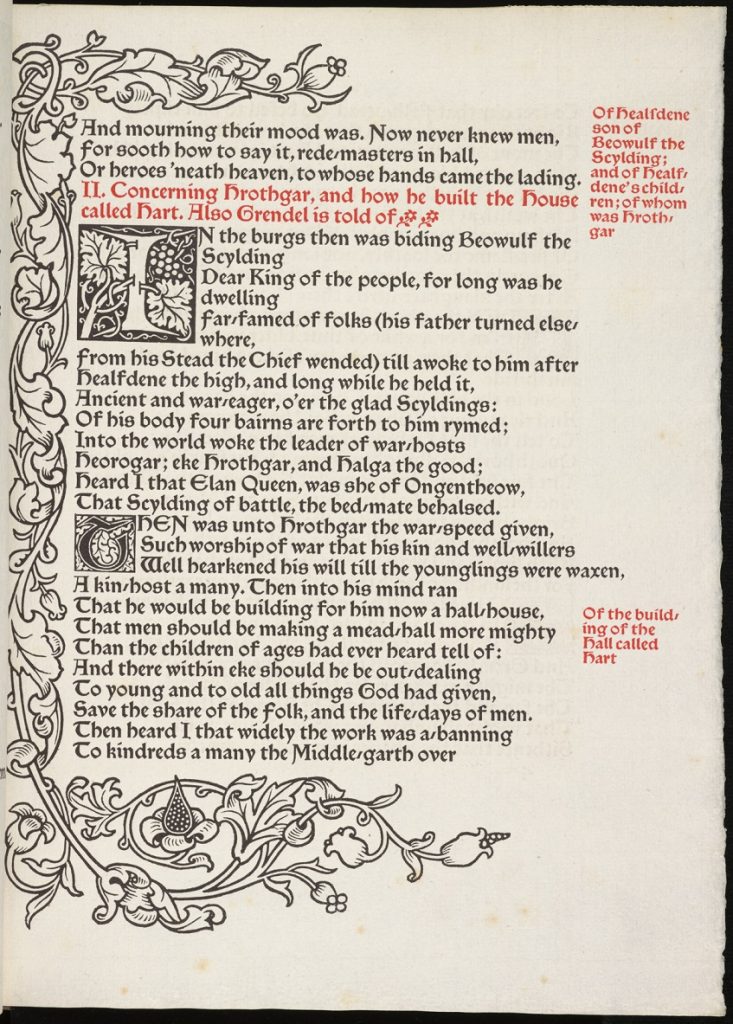 And mourning their mood was. Now never knew men,
For sooth how to say it, rede-masters in hall,
Or heroes 'neath heaven, to whose hands came the lading.
II. Concerning Hrothgar, and how he built the House
called Hart. Also Grendel is told of
IN the burgs then was biding Beowulf the
Scylding
Dear King of the people, for long was he
dwelling
Far-famed of folks (his father turned else-
where,
From his Stead the Chief wended) till awoke to him after
Healfdene the high, and long while he held it,
Ancient and war-eager, o'er the glad Scyldings:
Of his body four bairns are forth to him rymed;
Into the world woke the leader of war-hosts
Heorogar; eke Hrothgar, and Halga the good;
Heard I that Elan Queen, was she of Ongentheow,
That Scylding of battle, the bed-mate behalsed.
THEN was unto Hrothgar the war-speed given,
Such worship of war that his kin and well-willers
Well hearkened his will till the younglings were waxen,
A kin-host a many. Then into his mind ran
That he would be building for him now a hall-house,
That men should be making a mead-hall more mighty
Than the children of ages had ever heard tell of:
And there within eke should he be out-dealing
To young and to old all things God had given,
Save the share of the folk, and the life-days of men.
Then heard I that widely the work was a-banning
To kindreds a many the Middle-garth over
Of Healfdene
son of
Beowulf the
Scylding;
and of Healf-
dene's child-
ren; of whom
was Hroth-
gar
Of the build-
ing of the
Hall called
Hart